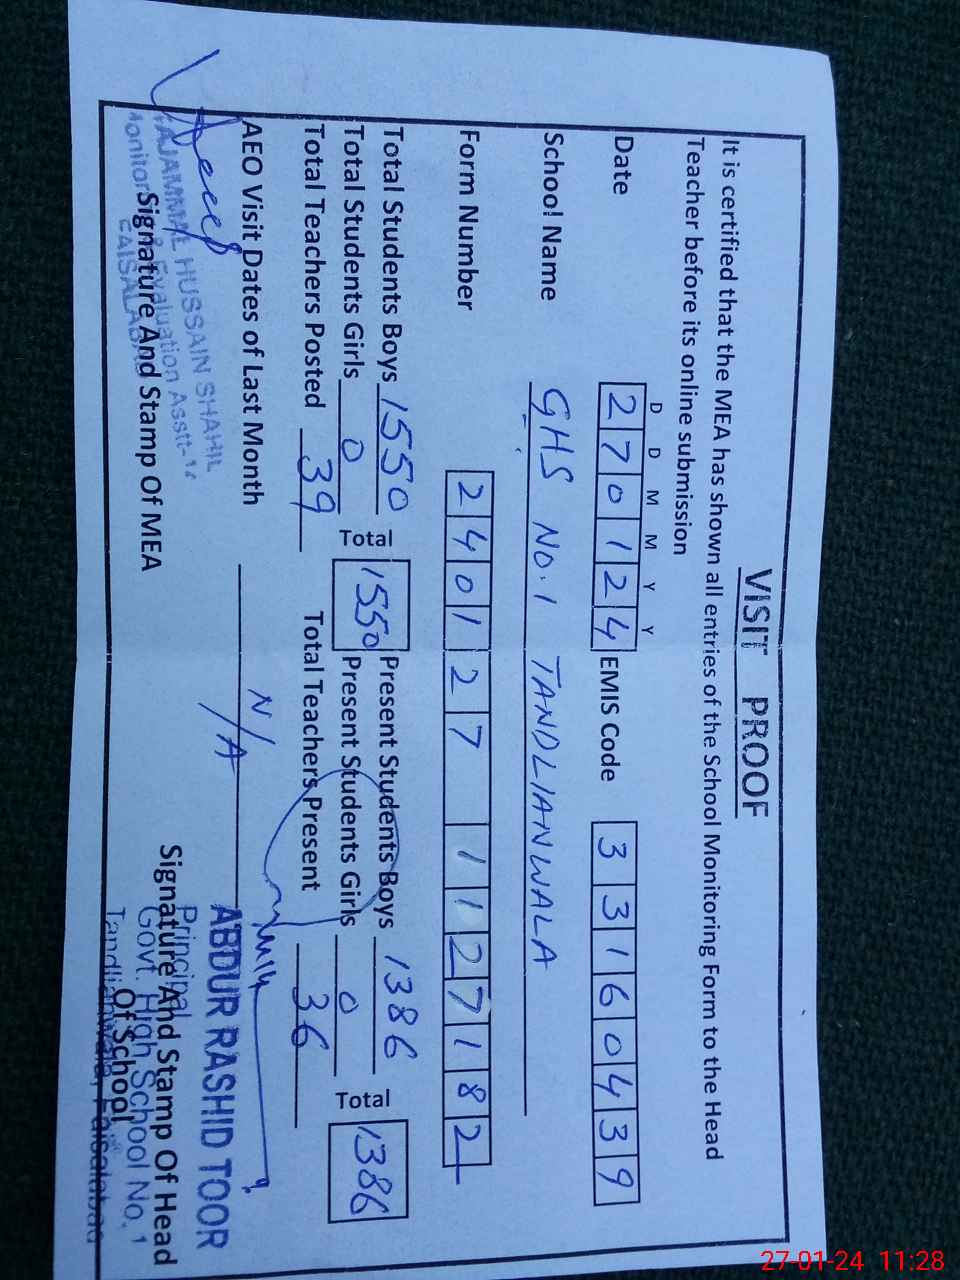 VISIT PROOF
It is certified that the MEA has shown all entries of the School Monitoring Form to the Head
Teacher before its online submission
D D M M Y Y
Date 270124 EMIS Code 33160439
School Name GHS No.1 TANDLIANWALA
Form Number 240127 1127182
Total Students Boys 1550 Total 1550 Present Students Boys 1386 Total 1386
Total Students Girls 0 Present Students Girls 0
Total Teachers Posted 39 Total Teachers Present 36
AEO Visit Dates of Last Month N/A
TAJAMMAL HUSSAIN SHAHIL
Monitoring & Evaluation Asstt-
FAISALABAD
Signature And Stamp Of MEA
ABDUR RASHID TOOR
Principal
Govt. High School No. 1
Tandlianwala, Faisalabad
Signature And Stamp Of Head
Of School
27-01-24 11:28